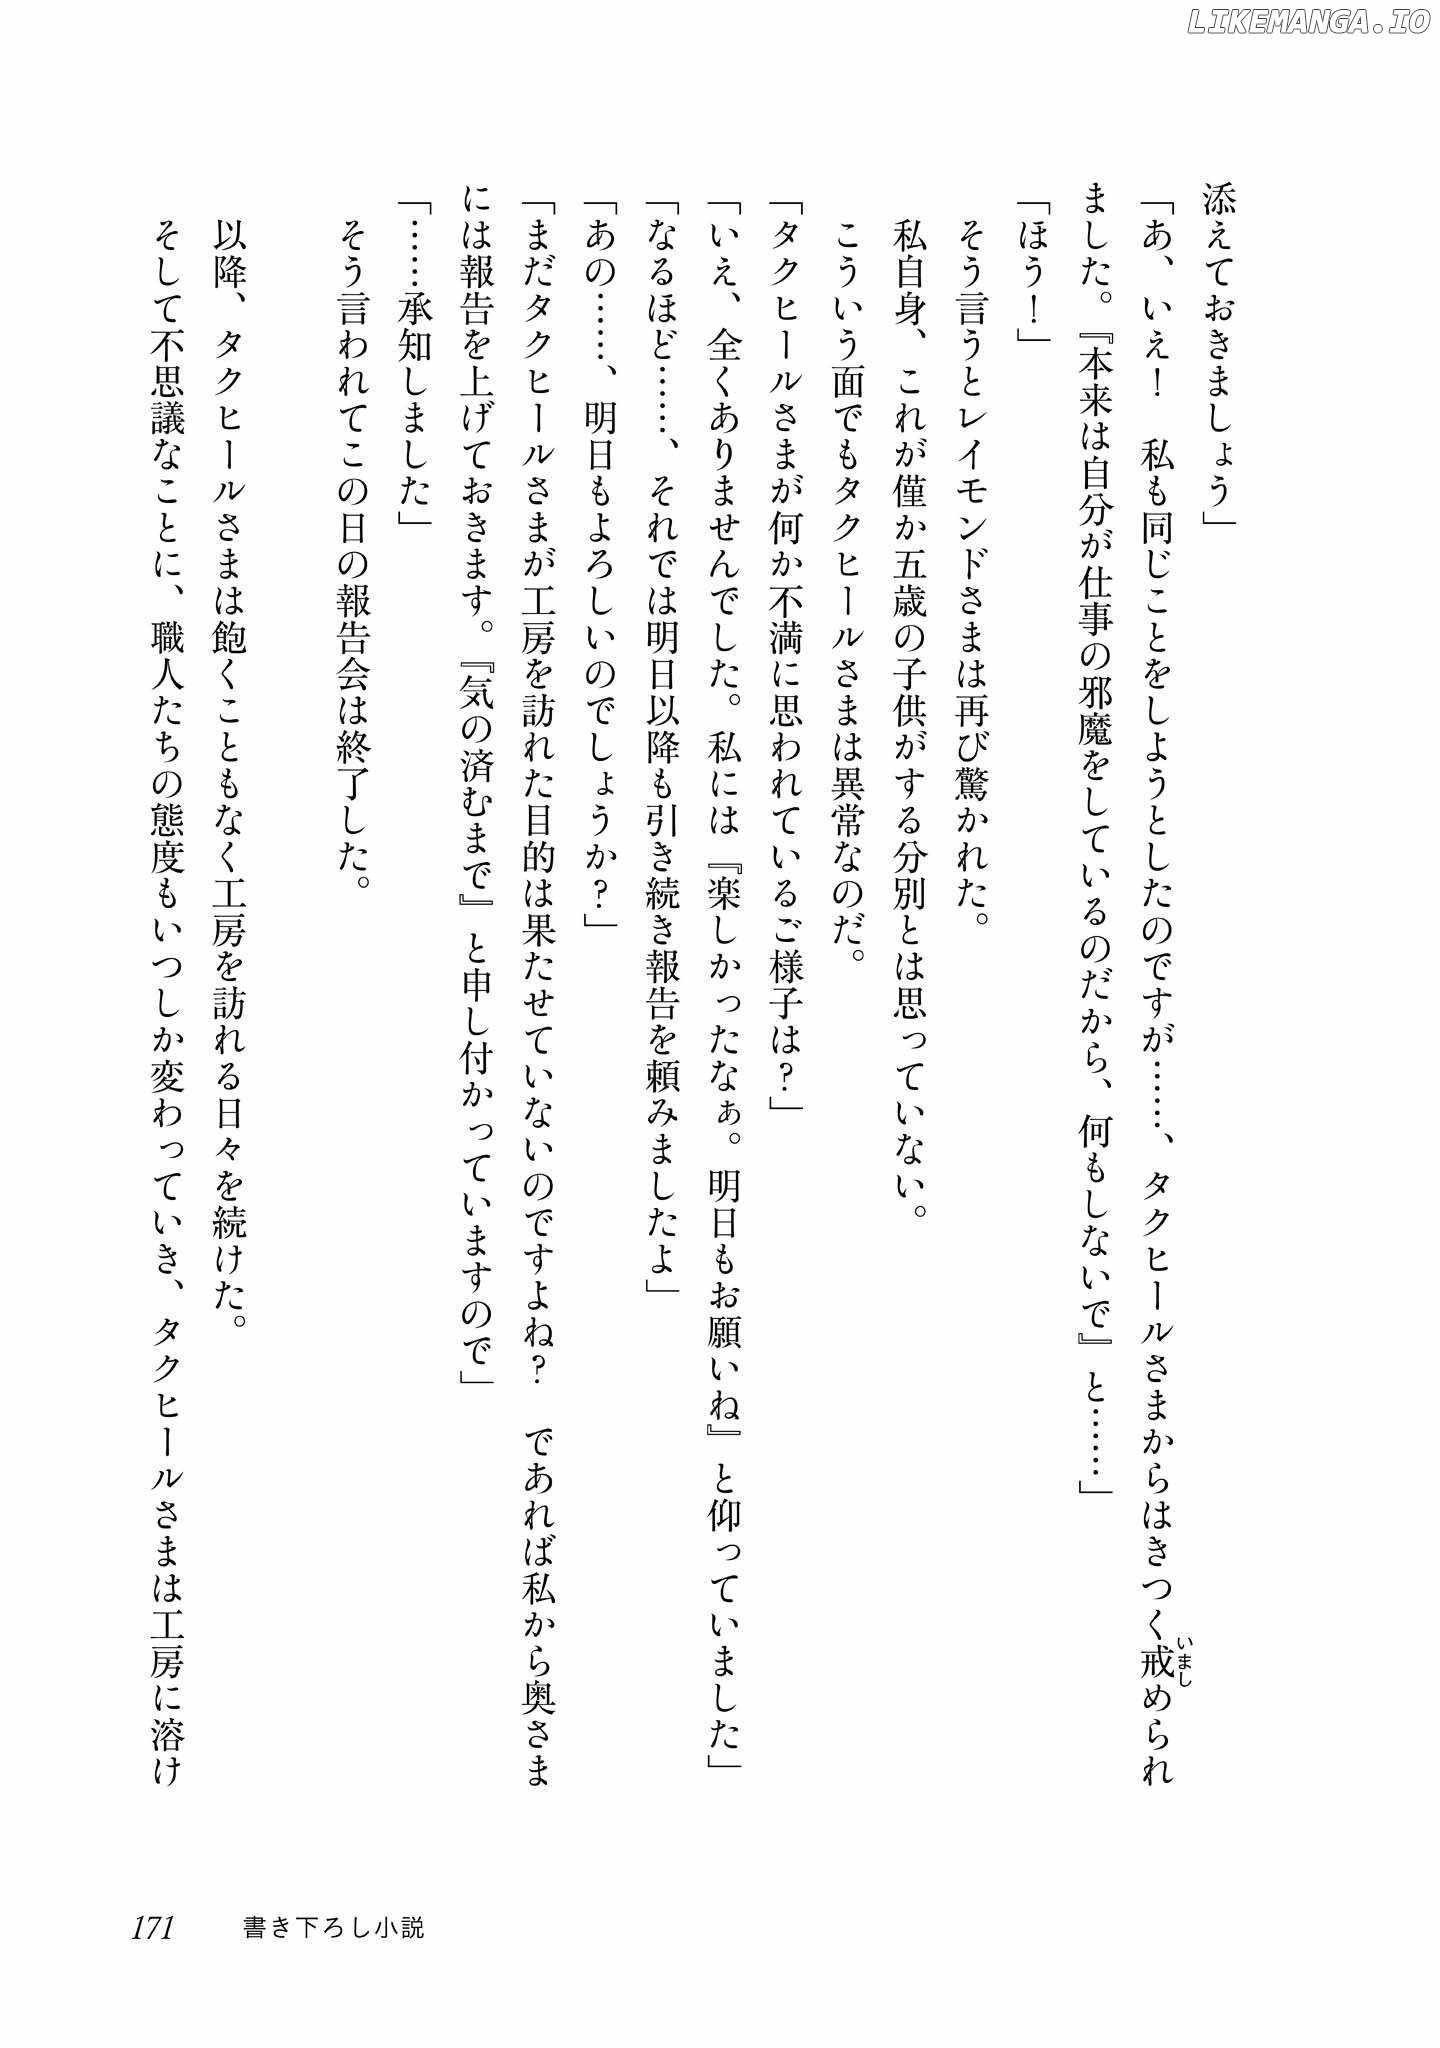 LIKEMANGA.IO
添えておきましょう」
「あ、いえ！　私も同じことをしようとしたのですが……、タクヒールさまからはきつく戒められ
いまし
ました。『本来は自分が仕事の邪魔をしているのだから、何もしないで』と……」
「ほう！」
　そう言うとレイモンドさまは再び驚かれた。
　私自身、これが僅か五歳の子供がする分別とは思っていない。
　こういう面でもタクヒールさまは異常なのだ。
「タクヒールさまが何か不満に思われているご様子は？」
「いえ、全くありませんでした。私には『楽しかったなぁ。明日もお願いね』と仰っていました」
「なるほど……、それでは明日以降も引き続き報告を頼みましたよ」
「あの……、明日もよろしいのでしょうか？」
「まだタクヒールさまが工房を訪れた目的は果たせていないのですよね？　であれば私から奥さま
には報告を上げておきます。『気の済むまで』と申し付かっていますので」
「……承知しました」
　そう言われてこの日の報告会は終了した。
　以降、タクヒールさまは飽くこともなく工房を訪れる日々を続けた。
　そして不思議なことに、職人たちの態度もいつしか変わっていき、タクヒールさまは工房に溶け
171　書き下ろし小説